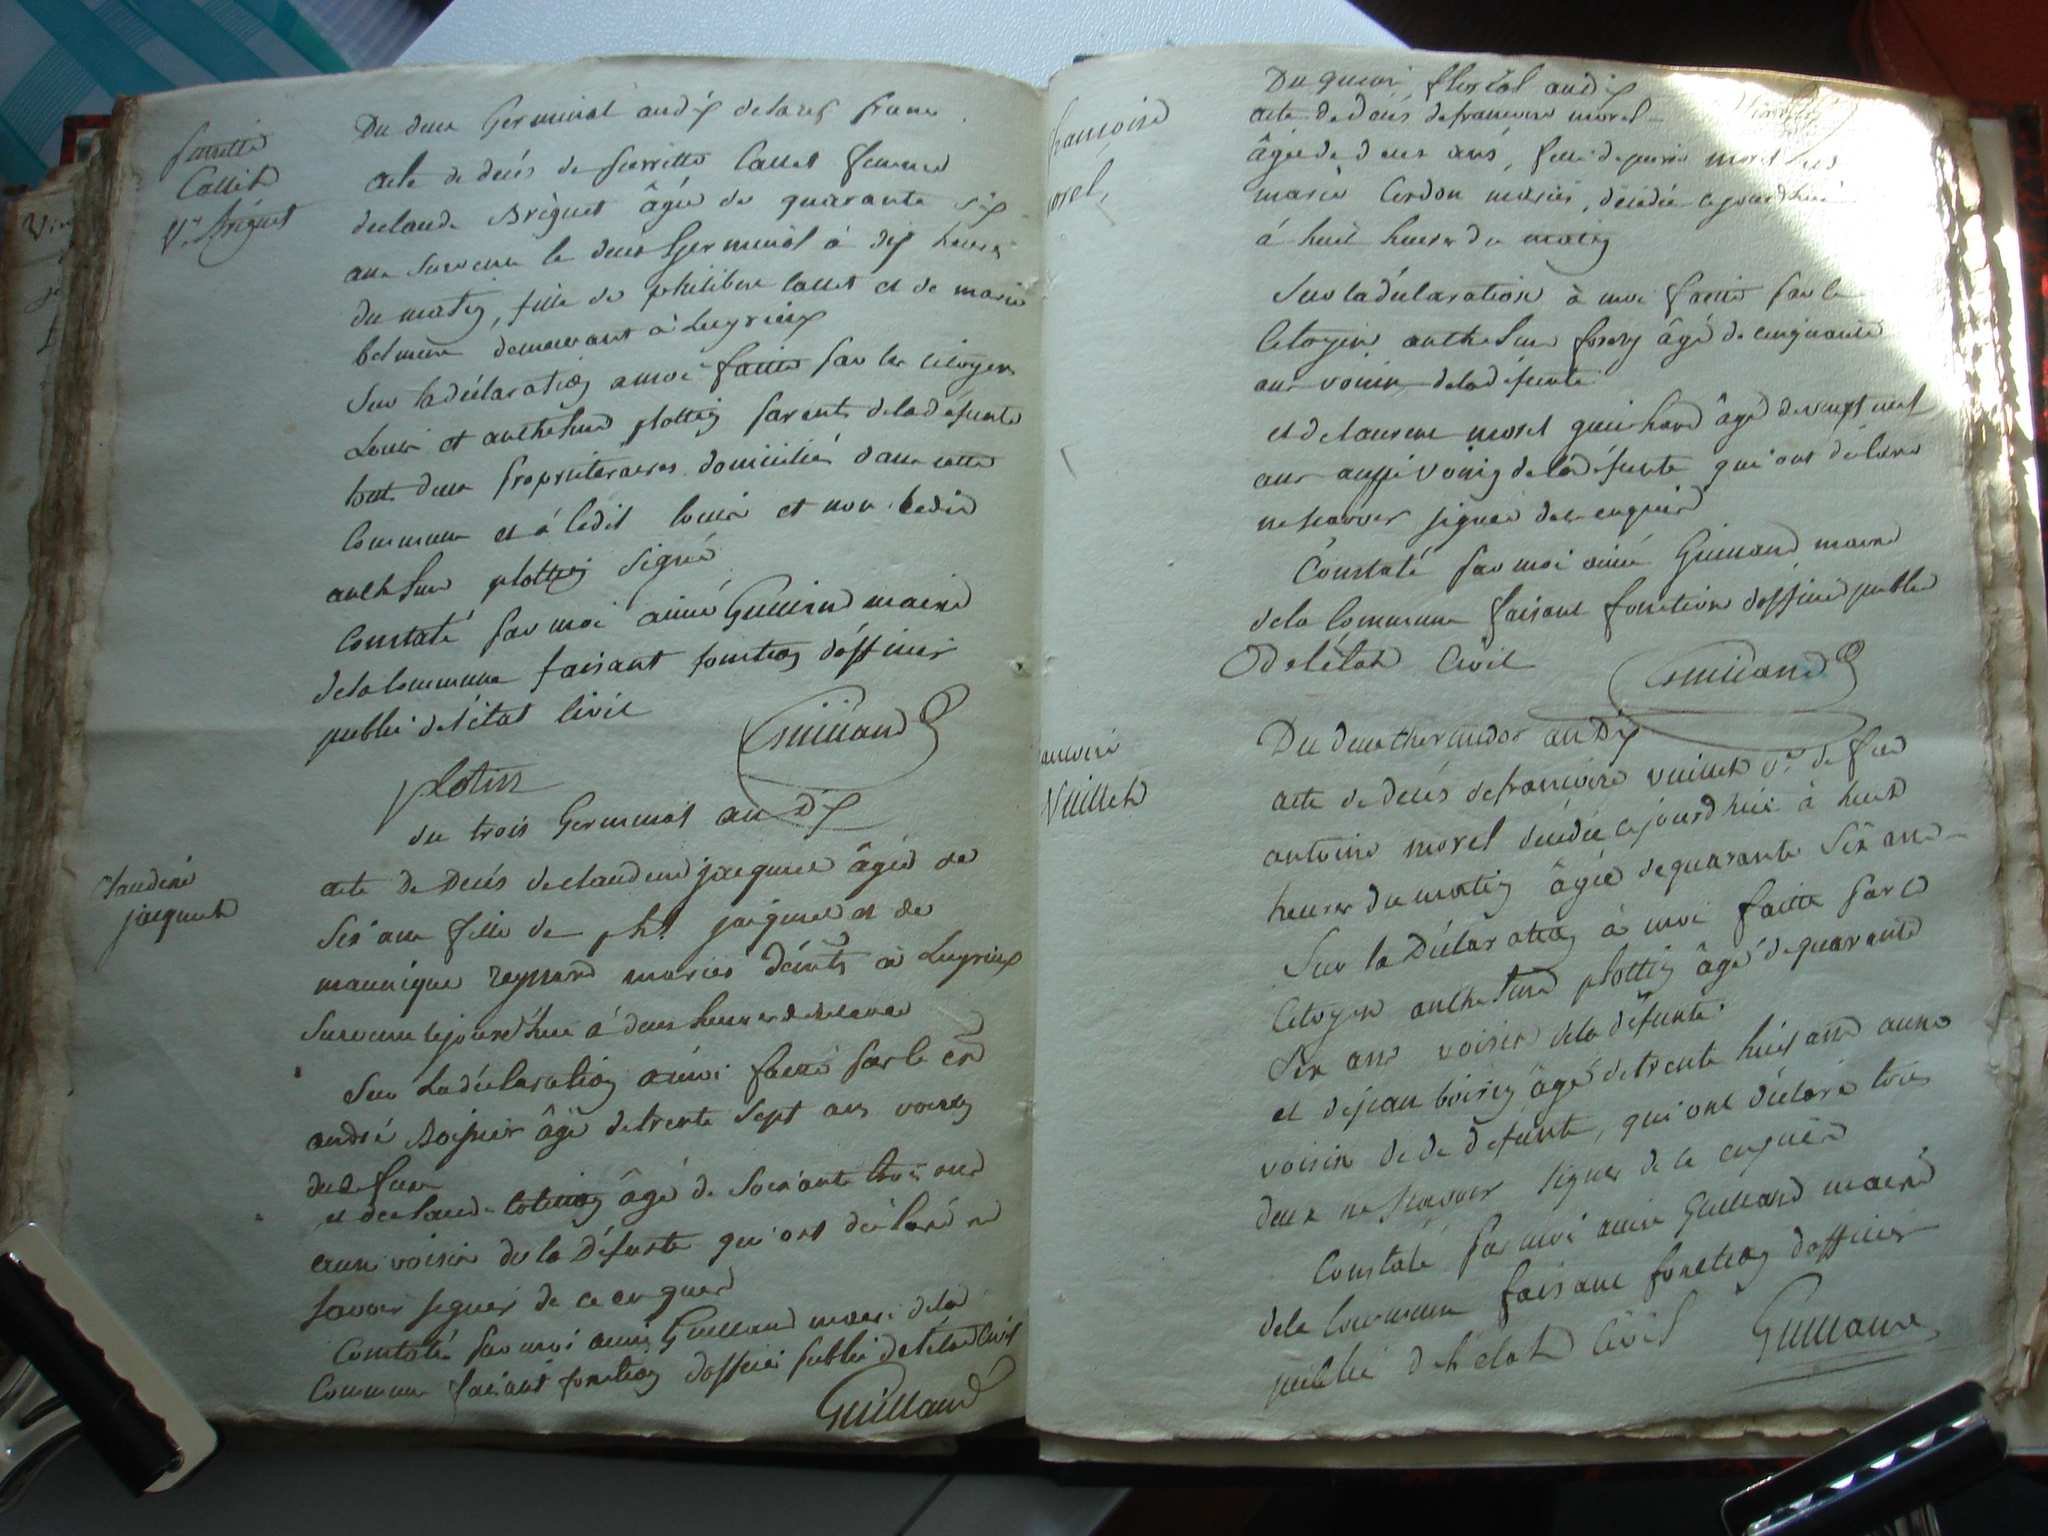 pierrette
Callet
Ve Briguet
Du deux Germinal an dix de la rep. franc.
acte de decés de pierrette Callet femme
de claude Briguet âgée de quarante six
ans survenu le deux Germinal à dix heures
du matin, fille de philibert Callet et de marie
demeurant à Luyrieux
Sur la déclaration a moi faitte par les citoyens
Louis et anthelme plottin parents de la défunte
tout deux propriteraires domiciliés dans cette
Commune et à ledit louis et non ledit
anthelme plottin signé
Constaté par moi aimé Guilland maire
de la Commune faisant fonction d'officier
public de l'état Civil Guilland
plotin
du trois Germinal an Dix
Claudine
jacquet
acte De Decés de claudine jacquet âgée de
six ans fille de ph. jacquet et de
maunique reynard mariés à Luyrieux
survenu cejourd'hui à deux heures de
Sur La déclaration à moi faitte par le cn
andré Boissier âgé de trente sept ans voisin
du defunt
et de claude âgé de soixante trois ans
aussi voisin de la Défunte qui ont déclaré ne
savoir signer de ce enquis
Constaté par moi aimé Guilland maire de la
Commune faisant fonction d'officier public de l'état Civil
Guilland
françoise
morel
Du floréal an dix
acte de décés de françoise morel
âgée de deux ans, fille de pierre morel et
marie Cordon mariés, décédée cejourd'hui
à huit heures du matin
Sur la déclaration à moi faitte par le
Citoyen anthelme âgé de cinquante
ans voisin de la défunte
et de laurent morel guichard âgé de vingt neuf
ans aussi voisin de la défunte qui ont déclaré
ne scavoir signer de ce enquis
Constaté par moi aimé Guilland maire
de la Commune faisant fonction d'officié public
de l'état Civil Guilland
françoise
Vuillet
Du deux thermidor an Dix
acte de décés de françoise vuillet ve de feu
antoine morel décédée cejourd'hui à huit
heures du matin âgée de quarante six ans
Sur la Déclaration à moi faitte par le
Citoyen anthelme plottin âgé de quarante
six ans voisin de la défunte
et de jean boisin âgé de trente huit ans aussi
voisin de de défunte, qui ont déclaré tous
deux ne scavoir signer de ce enquis
Constaté par moi aimé Guilland maire
de la Commune faisant fonction d'officier
public de l'état Civil Guilland